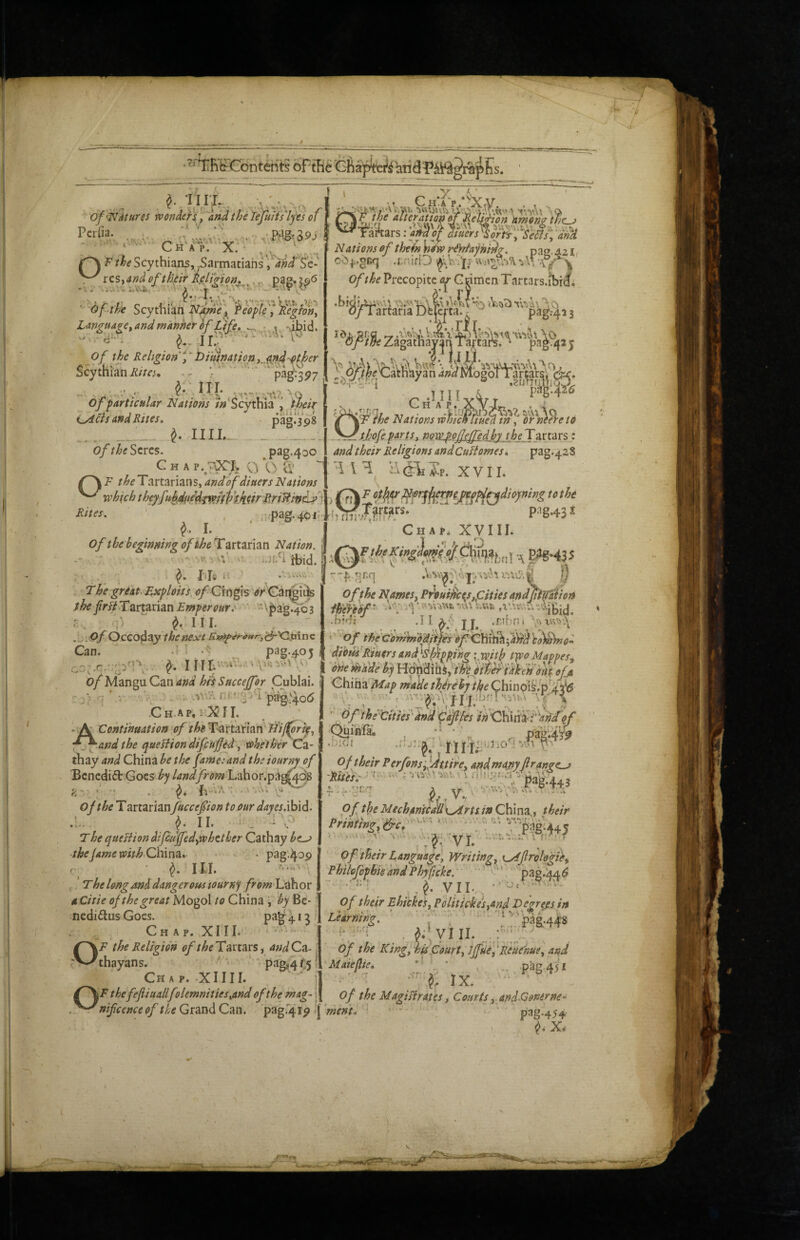 The Contents of the Chapters and Paragraphs.
§. IIII.
Of Natures wonders, and the Iesuits lyes of
Persia. pag.395
CHAP. X.
OF the Scythians, Sarmatians, and Se-
res, and of their Religion. pag.396
§. I.
Of the Scythian Name, People, Region,
Language, and manner of Life. ibid.
§. II.
Of the Religion, Diuination, and other
Scythian Rites. pag.397
§. III.
Of particular Nations in Scythia, their
Acts and Rites. pag.398
§. IIII.
Of the Seres. pag.400
CHAP. XI.
OF the Tartarians, and of diuers Nations
which they subdued; with their Pristine
Rites. pag.401
§. I.
Of the beginning of the Tartarian Nation.
ibid.
§. II.
The great Exploits of Cingis or Cangius
the first Tartarian Emperour. pag.403
§. III.
Of Occoday the next Emperour, & Cuine
Can. pag.405
§. IIII.
Of Mangu Can and his Successor Cublai.
pag.406
CHAP. XII.
A Continuation of the Tartarian Historie,
and the question discussed, whether Ca-
thay and China be the same: and the iourny of
Benedict Goes by land from Lahor. pag.408
§. I.
Of the Tartarian succession to our dayes. ibid.
§. II.
The question discussed, whether Cathay be
the same with China. pag.409
§. III.
The long and dangerous iourny from Lahor
a Citie of the great Mogol to China, by Be-
nedictus Goes. pag 413
CHAP. XIII.
OF the Religion of the Tartars, and Ca-
thayans. pag.415
CHAP. XIIII.
OF the festiuall solemnities, and of the mag-
nificence of the Grand Can. pag.419
CHAP. XV.
OF the alteration of Religion among the
Tartars: and of diuers Sorts, Sects, and
Nations of them now remayning. pag.421
§. I.
Of the Precopite or Crimen Tartars. ibid.
§. II.
Of Tartaria Deserta. pag.423
§. III.
Of the Zagathayan Tartars. pag.425
§. IIII.
Of the Cathayan and Mogol Tartars, &c.
pag.426
CHAP. XVI.
OF the Nations which liued in, or neere to
those parts, now possessed by the Tartars:
and their Religions and Customes. pag.428
CHAP. XVII.
OF other Northerne people adioyning to the
Tartars. pag.431
CHAP. XVIII.
OF the Kingdome of China. pag.435
§. I.
Of the Names, Prouinces, Cities and situation
thereof. ibid.
§. II.
Of the Commodities of China; and commo-
dious Riuers and Shipping: with two Mappes,
one made by Hondius, the other taken out of a
China Map made there by the Chinois. p.436
§. III.
Of the Cities and Castles in China: and of
Quinsa. pag.439
§. IIII.
Of their Persons, Attire, and many strange
Rites. pag.443
§. V.
Of the Mechanicall Arts in China, their
Printing, &c. pag.445
§. VI.
Of their Language, Writing, Astrologie,
Philosophie and Physicke. pag.446
§. VII.
Of their Ethickes, Politickes, and Degrees in
Learning. pag.448
§. VIII.
Of the King, his Court, Issue, Reuenue, and
Maiestie. pag 451
§. IX.
Of the Magistrates, Courts, and Gouerne-
ment. pag.454
§. X.